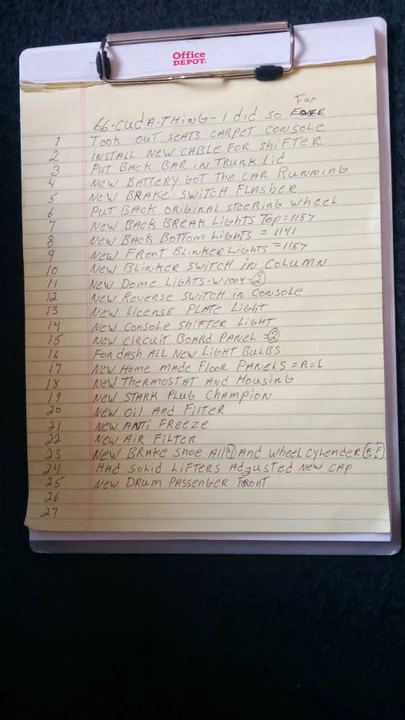 Office
DEPOT.
Far
66-CUDA-THING-I did so
1 TOOK OUT SEATS CARPET CONSOLE
2 INSTALL NEW CABLE FOR SHIFTER
3 PUT BACK BAR IN TRUNK Lid
4 NEW BATTERY GOT THE CAR RUNNING
5 NEW BRAKE SWITCH FLASHER
6 PUT BACK ORIGINAL STEERING WHEEL
7 NEW BACK BREAK LIGHTS TOP=1157
8 NEW BACK BOTTOM LIGHTS = 1141
9 NEW FRONT BLINKER LIGHTS =1157
10 NEW BLINKER SWITCH IN COLUMN
11 NEW DOME LIGHTS 2
12 NEW REVERSE SWITCH IN CONSOLE
13 NEW LICENSE PLATE LIGHT
14 NEW CONSOLE SHIFTER LIGHT
15 NEW CIRCUIT BOARD PANEL =2
16 FOR dASH ALL NEW LIGHT BULBS
17 NEW HOME MADE FLOOR PANELS =R=L
18 NEW THERMOSTAT AND HOUSING
19 NEW STARK PLUG CHAMPION
20 NEW OIL AND FILTER
21 NEW ANTI FREEZE
22 NEW AIR FILTER
23 NEW BRAKE SHOE All 4 AND WHEEL CYLENDER
24 HAD SOLID LIFTERS AdJUSTED NEW CAP
25 NEW DRUM PASSENGER FRONT
26
27